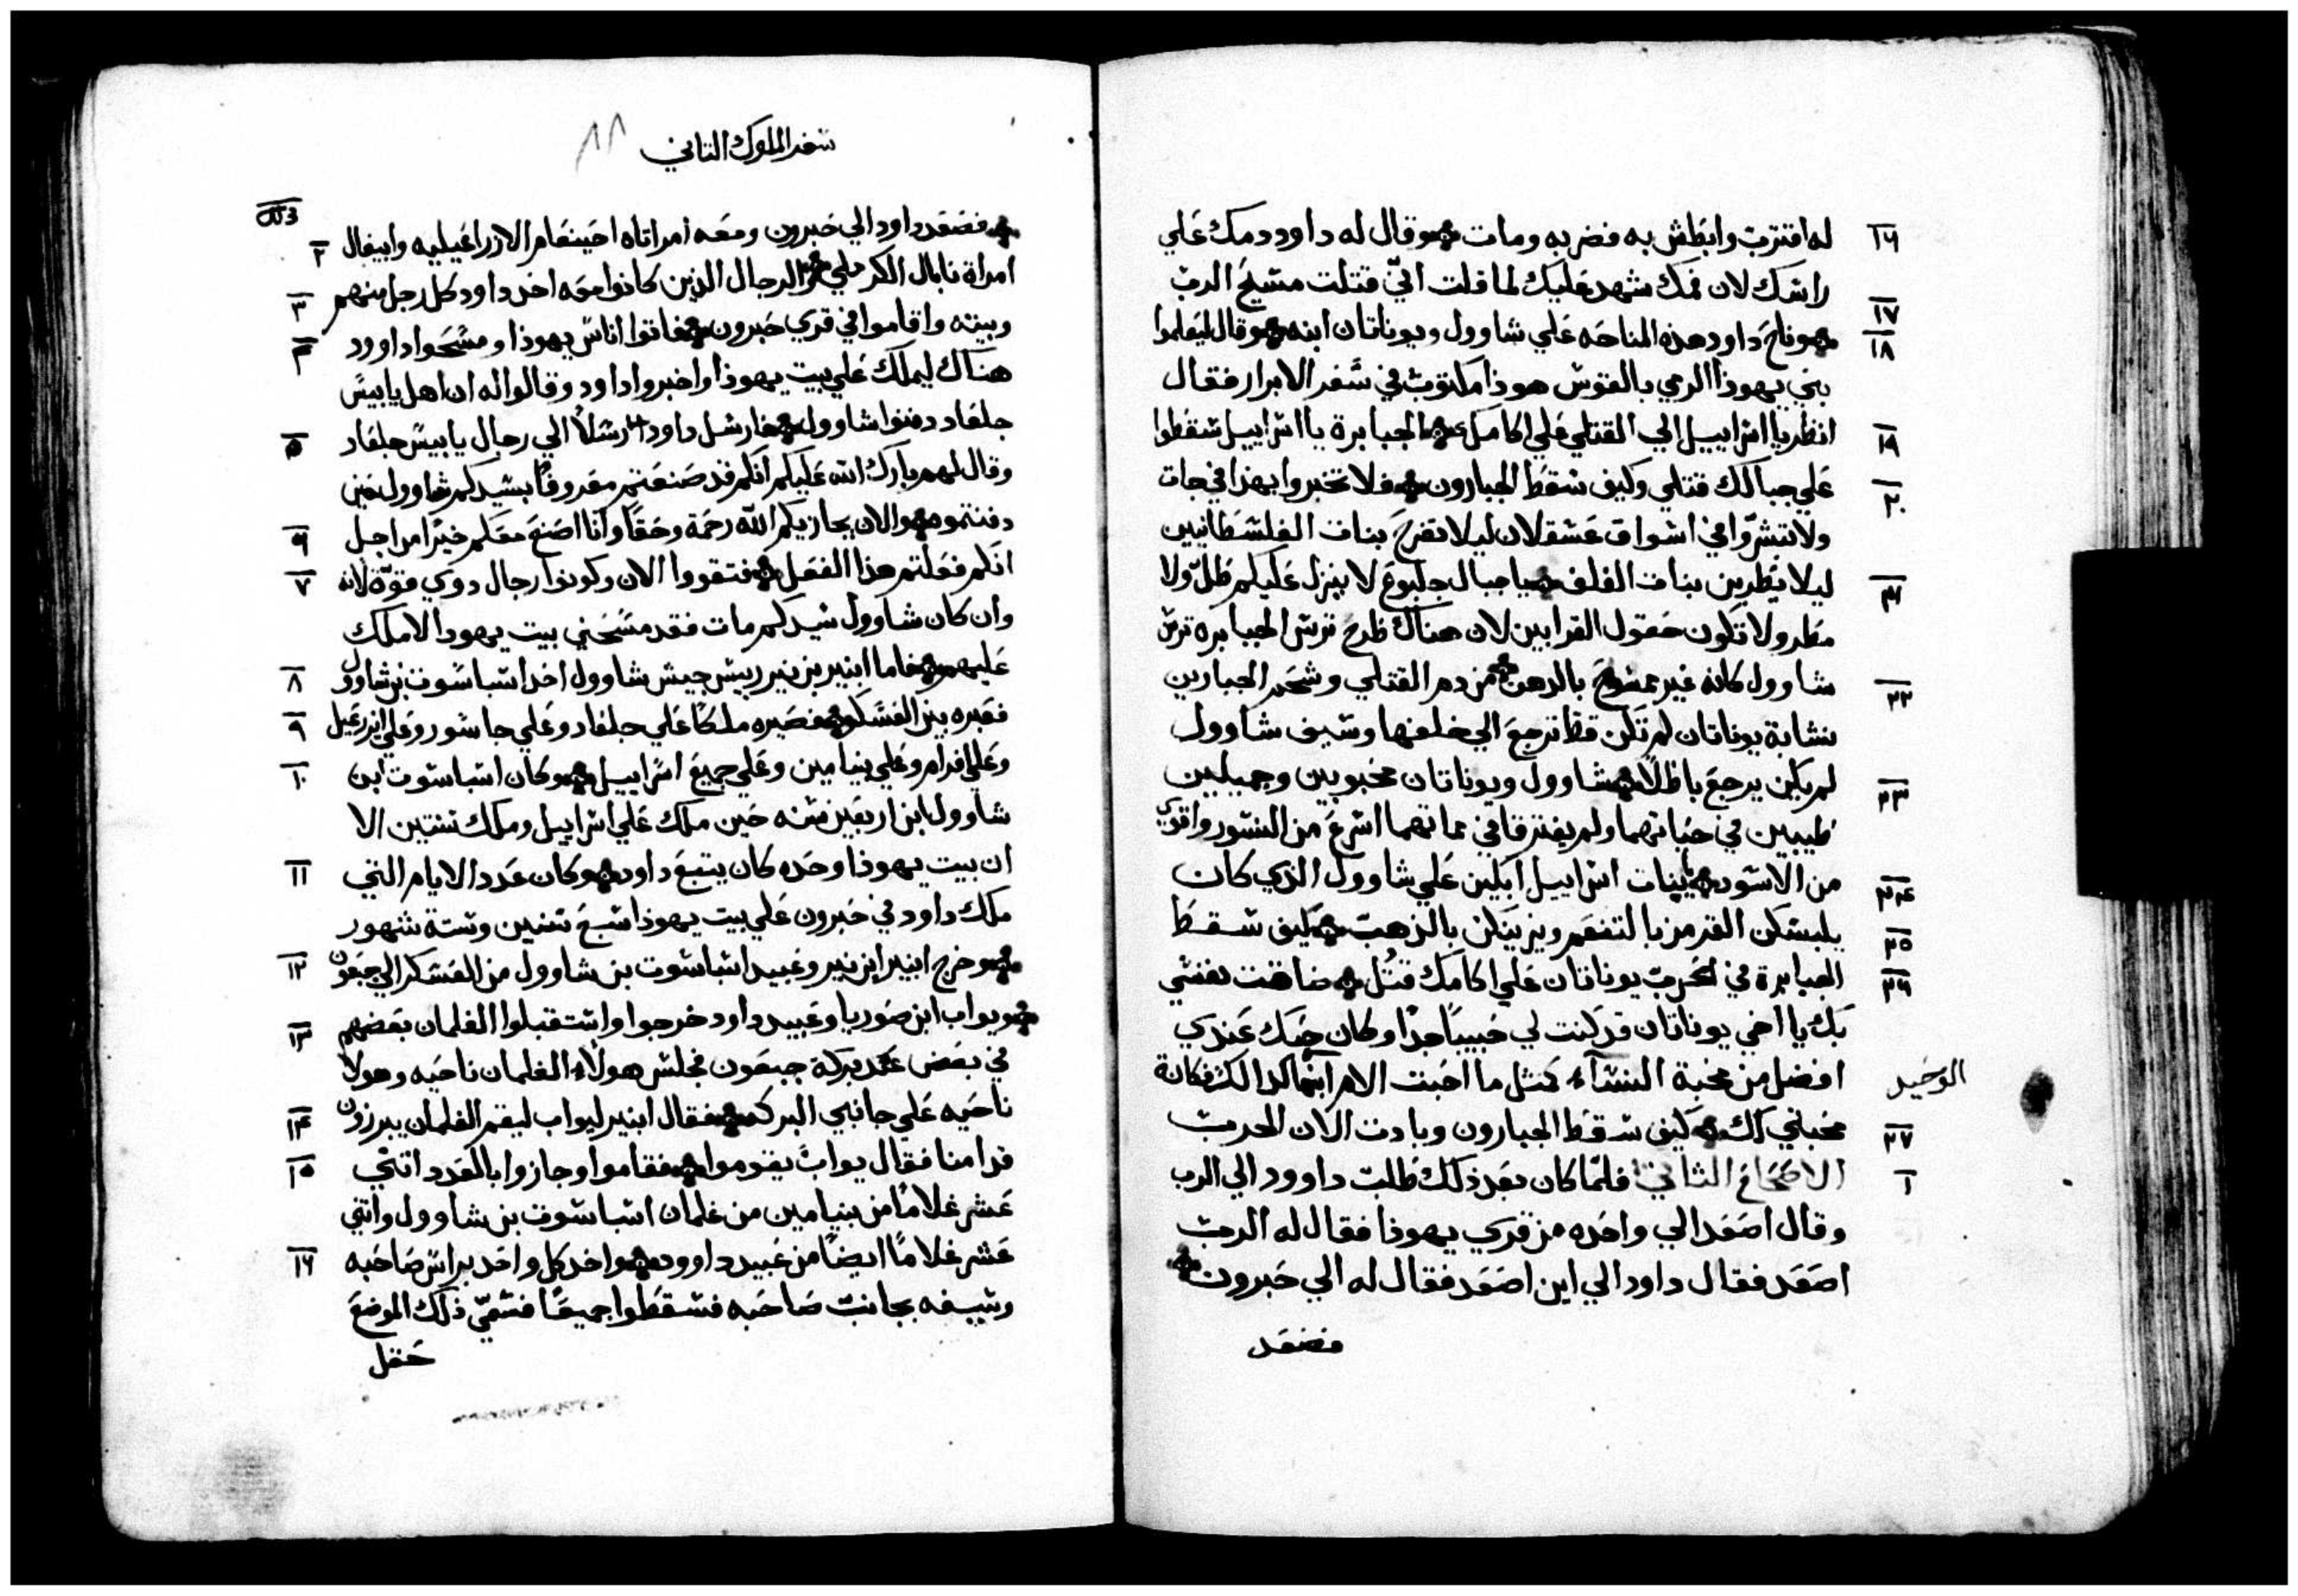 ١٦ له اقترب وابطش به فضربه ومات وقال له داود دمك علي
راسك لان فمك شهد عليك لما قلت اني قتلت مسيح الرب
١٧ ١٨ وناح داود هذه المناحه علي شاوول ويوناتان ابنه وقال ليعلموا
بني يهوذا الرمي بالقوس هوذا مكتوب في سفر الابرار فقال
١٩ انظر يا اسراييل الي القتلي علي اكامك الجبابرة يا اسراييل سقطوا
٢٠ علي جبالك قتلي وكيف سقط الجبارون فلا تخبروا بهذا في جات
ولا تبشروا في اسواق عسقلان ليلا تفرح بنات الفلسطانيين
٢١ ليلا يطربن بنات الغلف يا جبال جلبوع لا ينزل عليكم طل ولا
مطر ولا تكون حقول القرابين لان هناك طرح ترس الجبابره ترس
٢٢ شاوول كانه غير ممسوح بالدهن من دم القتلي وشحم الجبارين
نشابة يوناتان لم تكن قط ترجع الي خلفها وسيف شاوول
٢٣ لم يكن يرجع باطلا شاوول ويوناتان محبوبين وجميلين
طيبين في حياتهما ولم يفترقا في مماتهما اسرع من النسور واقوي
٢٤ من الاسود يا بنات اسراييل ابكين علي شاوول الذي كان
٢٥ يلبسكن القرمز بالتنعم ويزينكن بالذهب كيف سقط
٢٦ الجبابرة في الحرب يوناتان علي اكامك قتل ضاقت نفسي
بك يا اخي يوناتان قد كنت لي حبيبا جدا وكان حبك عندي
افضل من محبة النسآء كمثل ما احبت الام ابنها كذالك فكانة الوحيد
٢٧ محبتي لك كيف سقط الجبارون وبادت الان الحرب
١ الاصحاح الثاني فلما كان بعد ذلك طلب داوود الي الرب
وقال اصعد الي واحده من قري يهوذا فقال له الرب
اصعد فقال داود الي اين اصعد فقال له الي حبرون
فصعد
سفر الملوك الثاني
٢ فصعد داود الي حبرون ومعه امراتاه احينعام الازراعيليه وابيغال
٣ امراة نابال الكرملي والرجال الذين كانوا معه اخد داود كل رجل منهم
٤ وبيته واقاموا في قري حبرون فاتوا اناس يهوذا ومسحوا داوود
هناك ليملك علي بيت يهوذا واخبروا داود وقالوا له ان اهل يابيس
٥ جلعاد دفنوا شاوول فارسل داود رسلا الي رجال يابيس جلعاد
وقال لهم بارك الله عليكم انكم قد صنعتم معروفا بسيدكم شاوول حين
٦ دفنتموه والان يجازيكم الله رحمة وحقا وانا اصنع معكم خيرا من اجل
٧ انكم فعلتم هذا الفعل فتقووا الان وكونوا رجال دوي قوة لانه
وان كان شاوول سيدكم مات فقد مسحني بيت يهودا لاملك
٨ عليهم فاما ابنير بن نير رييس جيش شاوول اخد اسباسوت بن شاوول
٩ فعبره بين العسكر فصيره ملكا علي جلعاد وعلي جاسور وعلي ايزرعيل
١٠ وعلي افرام وعلي بنيامين وعلي جميع اسراييل وكان اسباسوت ابن
شاوول ابن اربعين سنه حين ملك علي اسراييل وملك سنتين الا
١١ ان بيت يهوذا وحده كان يتبع داود وكان عدد الايام التي
ملك داود في حبرون علي بيت يهوذا سبع سنين وستة شهور
١٢ وخرج ابنير ابن نير وعبيد اسباسوت بن شاوول من العسكر الي جبعون
١٣ ويواب ابن صوريا وعبيد داود خرجوا واستقبلوا الغلمان بعضهم
في بعض عند بركة جبعون فجلس هولاء الغلمان ناحيه وهولا
١٤ ناحيه علي جانبي البركه فقال ابنير ليواب ليقم الغلمان يبرزون
١٥ قدامنا فقال يواب يقوموا فقاموا وجازوا بالعدد اثني
عشر غلاما من بنيامين من غلمان اسباسوت بن شاوول واثني
١٦ عشر غلاما ايضا من عبيد داوود واخد كل واحد براس صاحبه
وسيفه بجانب صاحبه فسقطوا جميعا فسمي ذلك الموضع
حقل